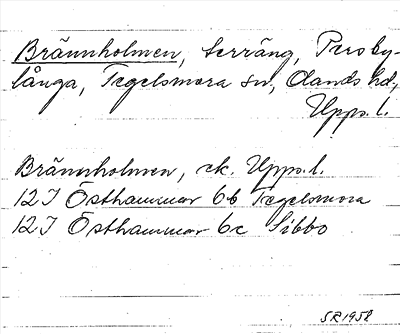 Brännholmen, terräng, Persby-
långa, Tegelsmora sn, Olands hd,
Upps. l.
Brännholmen, ek. Upps. l.
12I Östhammar 6b Tegelsmora
12I Östhammar 6c Sibbo
SR 1958